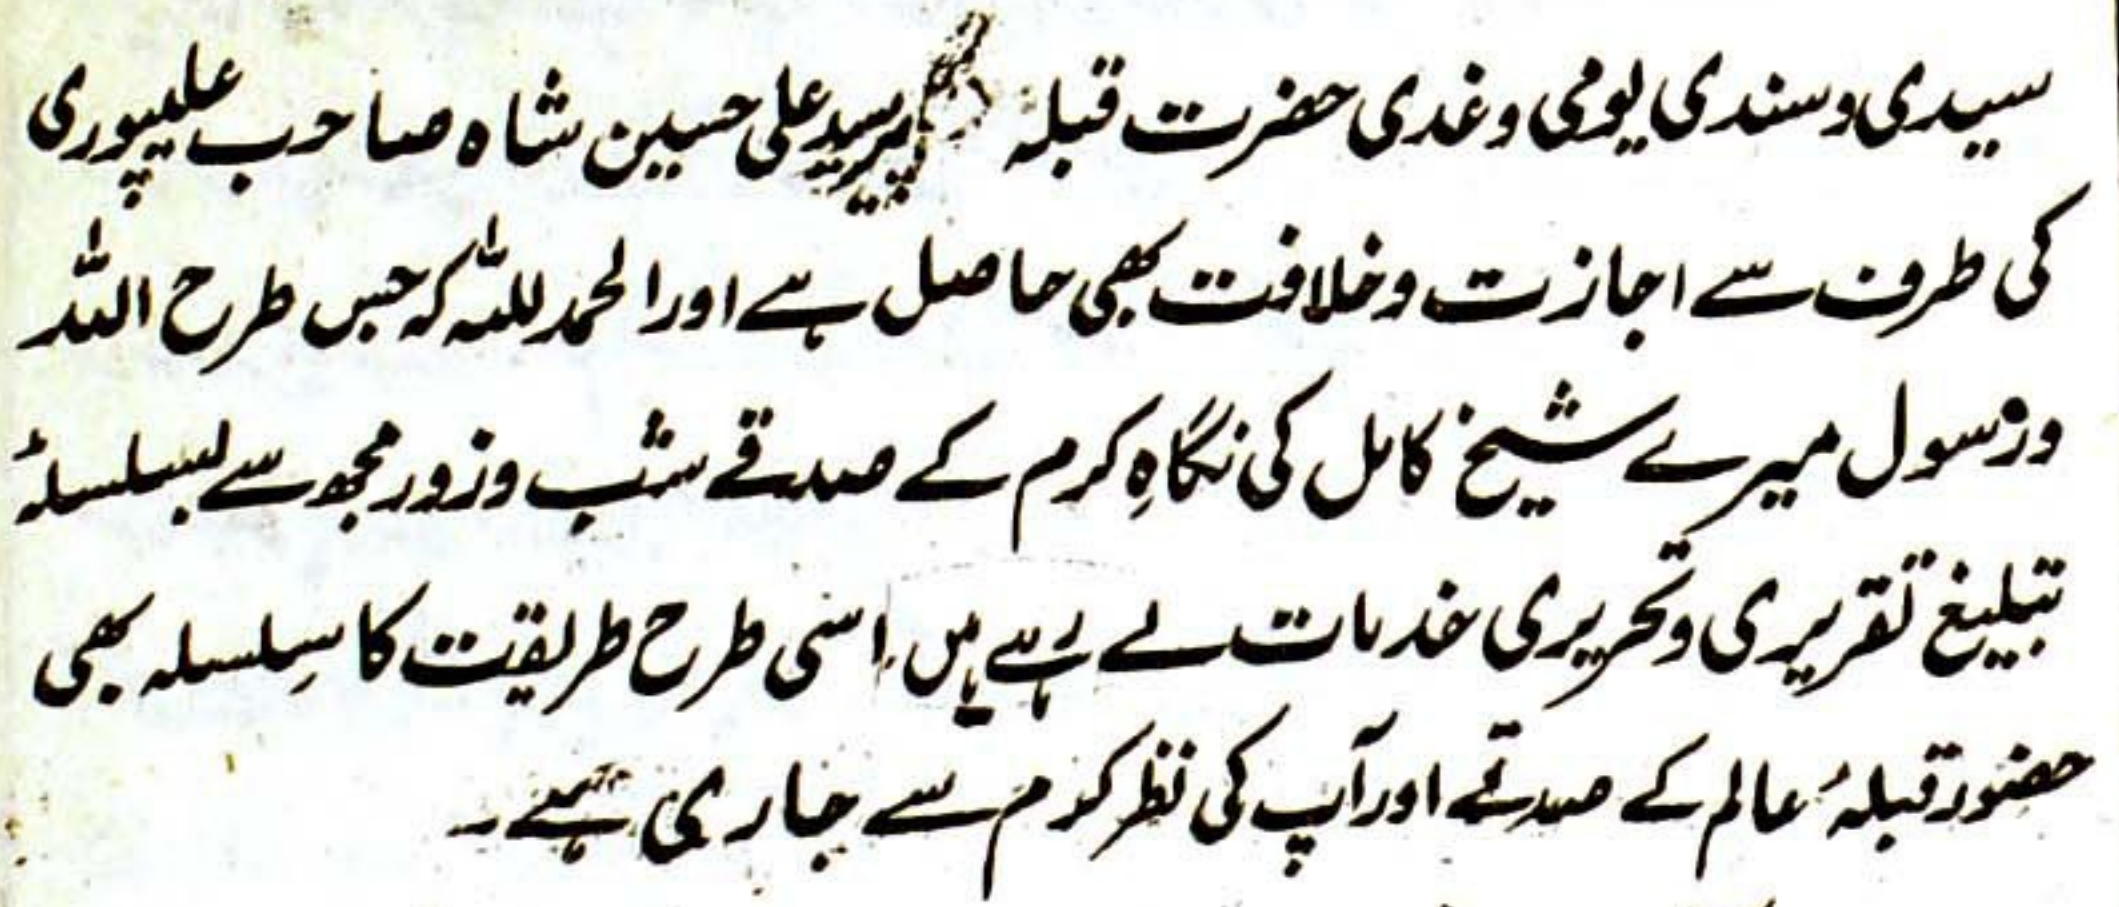 سیدی وسندی یومی وغدی حضرت قبلۂ پیر سید علی حسین شاہ صاحب علیپوری
کی طرف سے اجازت وخلافت بھی حاصل ہے اور الحمد للہ کہ جس طرح اللہ
ورسول میرے شیخ کامل کی نگاہِ کرم کے صدقے شب وزور مجھ سے بسلسلۂ
تبلیغ تقریری وتحریری خدمات لے رہے ہیں اسی طرح طریقت کا سِلسلہ بھی
حضور قبلۂ عالم کے صدقے اور آپ کی نظر کرم سے جاری ہے۔